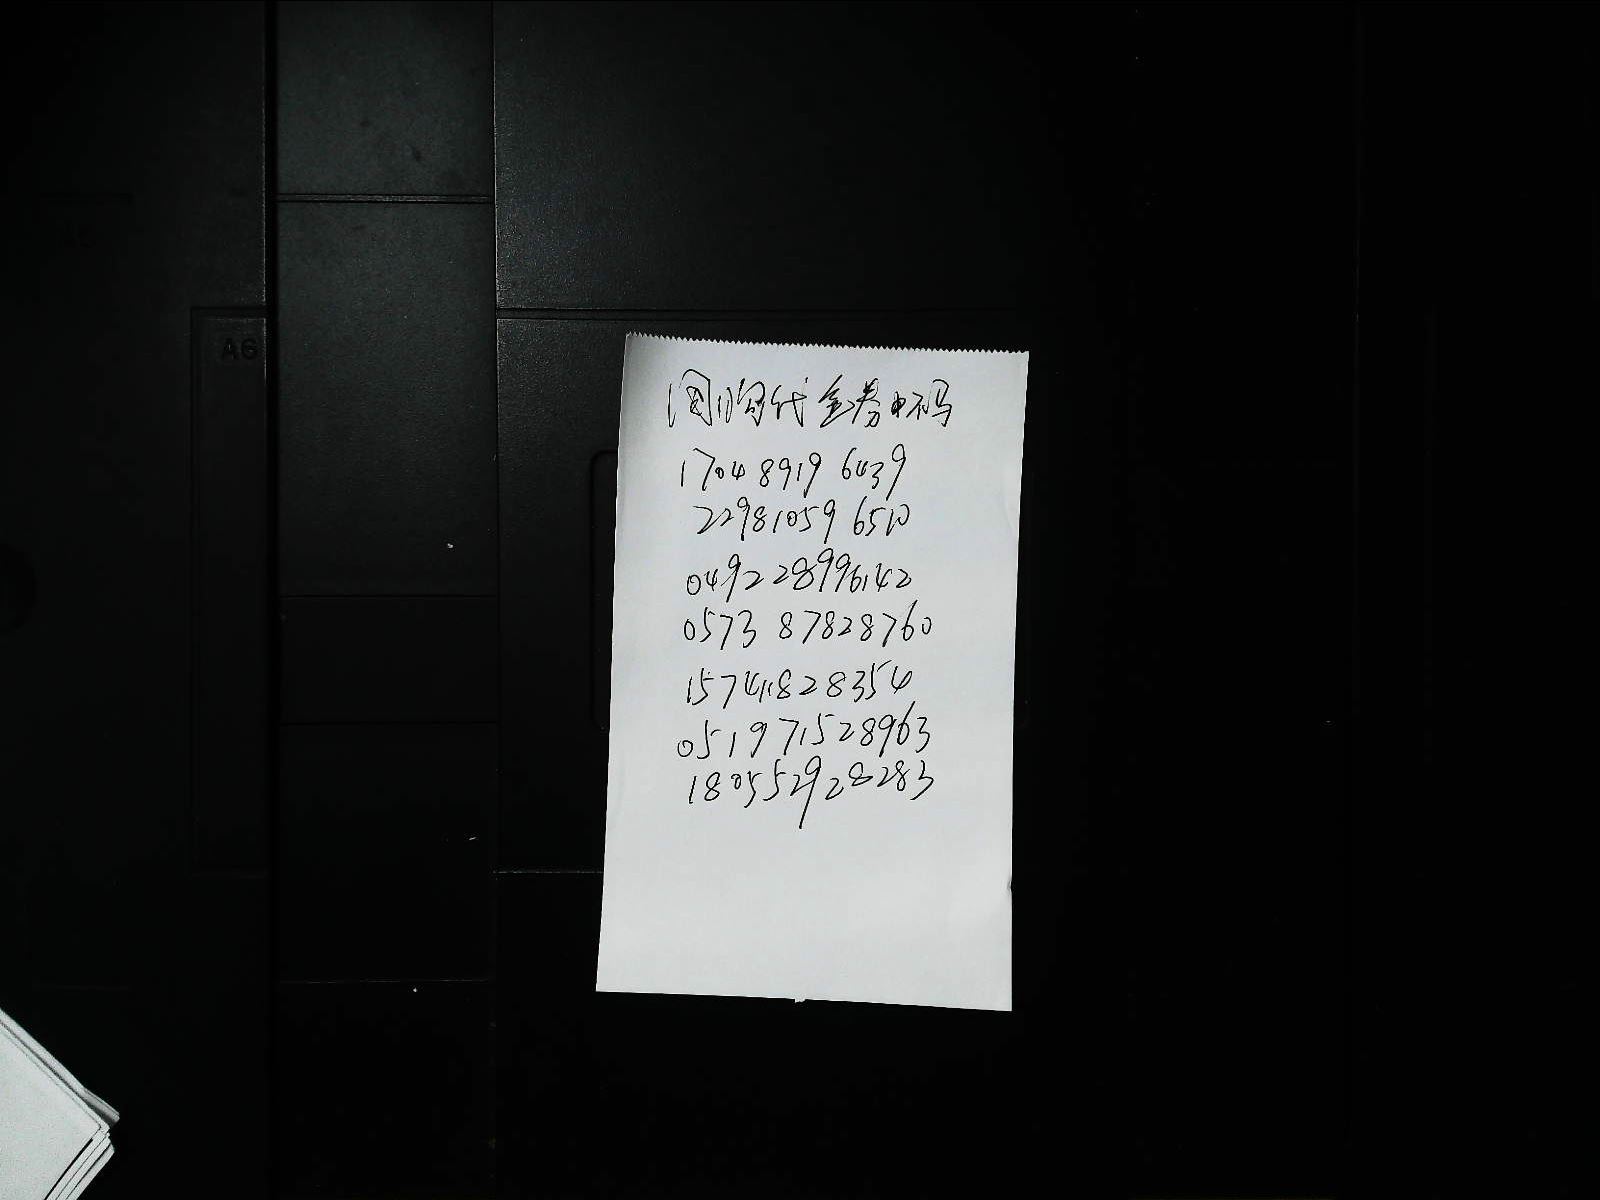 A6
团购代金券串码
1704 8919 6439
22981059 6510
049228996142
0573 87828760
15741828354
051971528963
180552928283